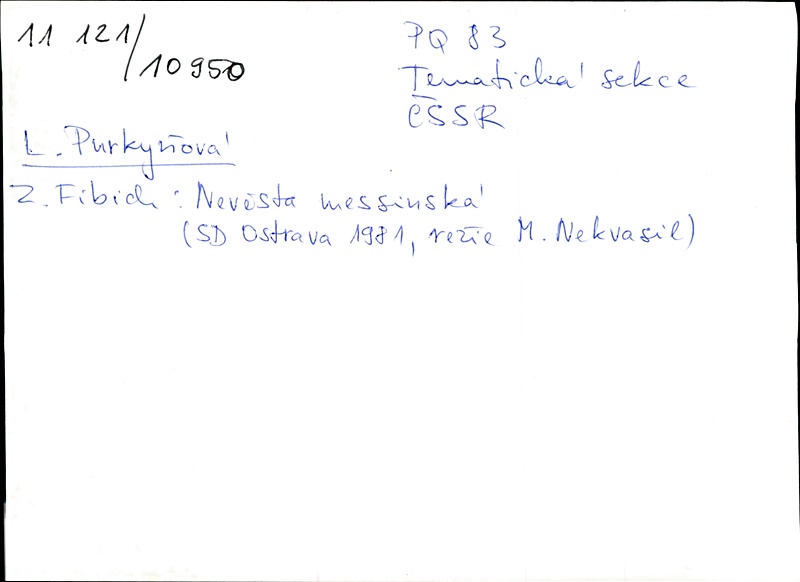 11 121/10950
PQ 83
Tematická sekce
ČSSR
L. Purkyňová
Z. Fibich : Nevěsta messinská
(SD Ostrava 1981, režie M. Nekvasil)